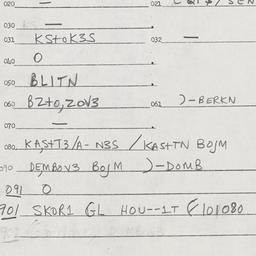 020 — 021
030 —
031 KStoK3S 032 —
040 O
050 BLITN
060 BZto,ZOV3 061 )-BERKN
070 —
080. KA,StT3/A-N3S /KAStTN BOJM
090 DEMBOV3 BOJM )-DOMB
091 O
901 SKOR1 GL HOU--1T F/01080